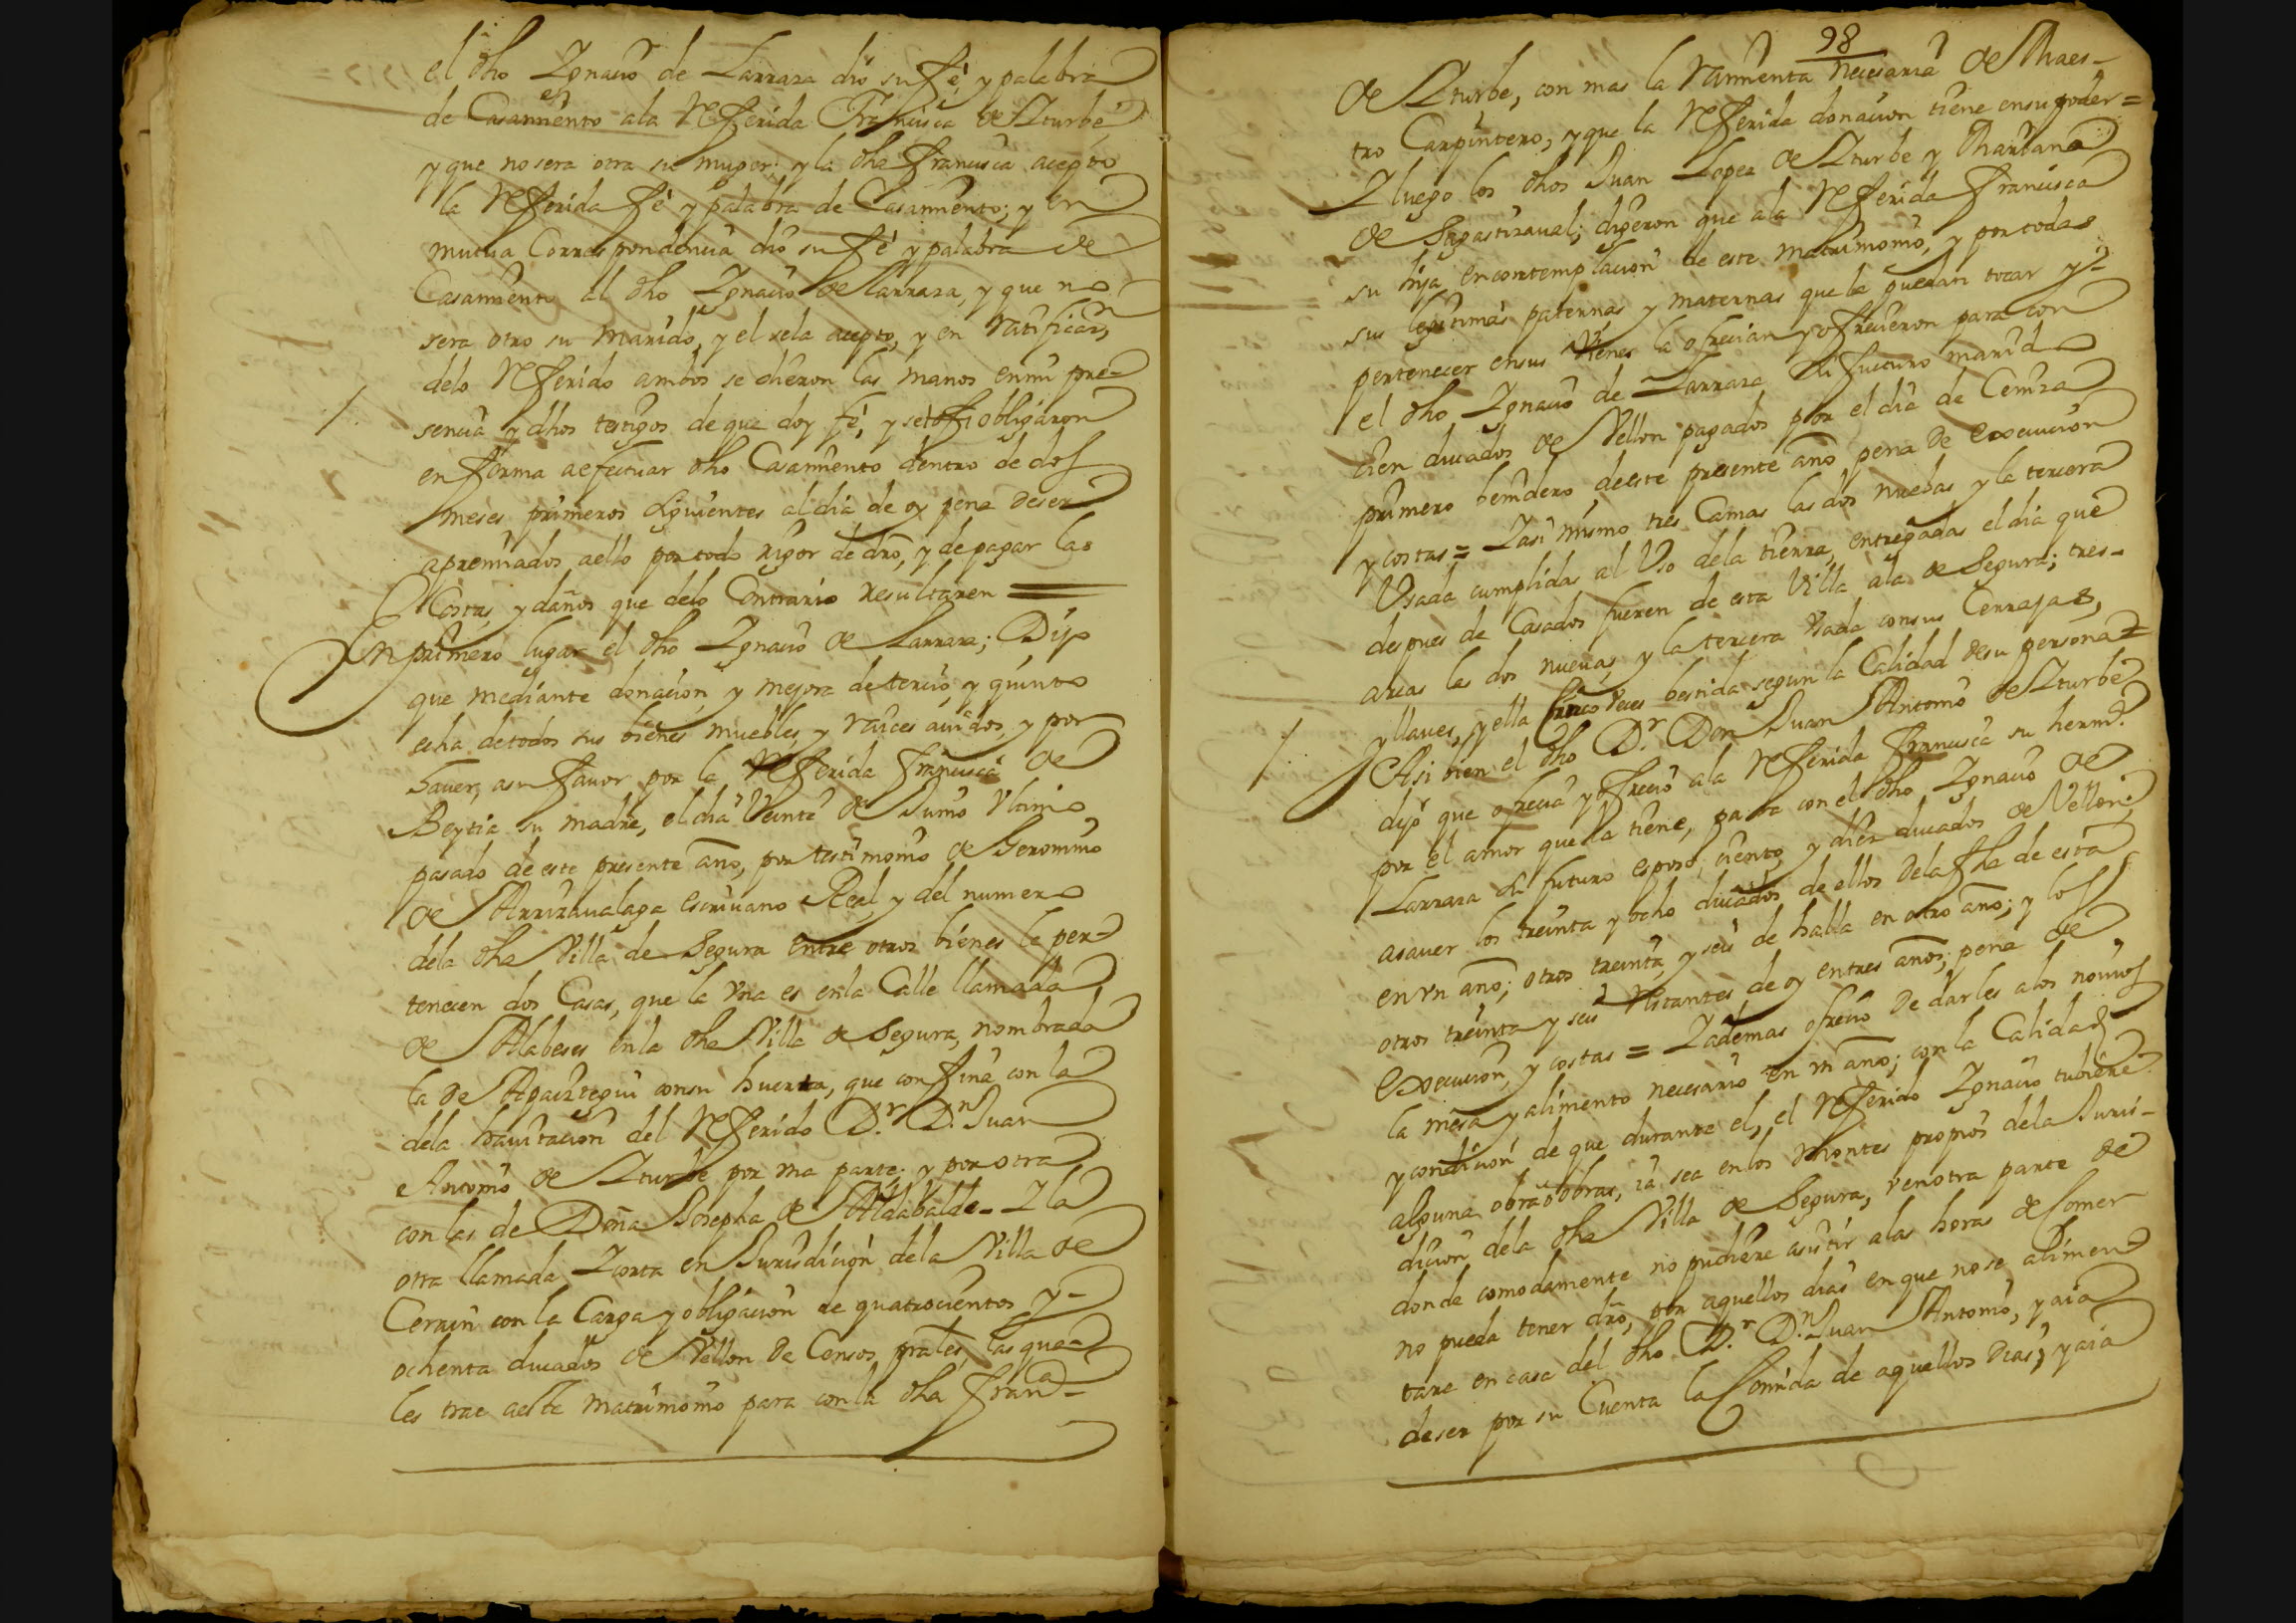 el dho Ygnacio de Larraza dio su fé, y palabra
de Casamiento ala Referida Francisca de Yturbe,
y que no sera otra su muger; y la dha Francisca acepto
la Referida fé y palabra de Casamiento; y en
mutua Correspondencia dio su fé y palabra de
Casamiento al dho Ygnacio de Larraza, y que no
sera otro su Marido, y el sela acepto, y en ratificaon
delo Referido ambos se dieron las manos enmi pre-
sencia y dhos testigos de que doy fé, y se obligaron
en forma aefectuar dho Casamiento dentro de dos
meses primeros siguientes al dia de oy pena deser
apremiados aello por todo rigor de dro, y de pagar las
Costas, y daños que delo Contrario resultaren =
En primero lugar el dho Ygnacio de Larraza; Dijo
que mediante donacion, y mejora de tercio, y quinto
echa detodos sus bienes muebles, y raices auidos, y por
hauer, asu fauor por la Referida Francisca de
Beytia su madre, el dia Veinte de Junio Vltimo
pasado de este presente año, por testimonio de Geronimo
de Arrizaualaga escriuano Real y del numero
dela dha Villa de Segura entre otros bienes le per-
tenecen dos Casas, que la vna es enla Calle llamada
de Alabeses enla dha Villa de Segura, nombrada
la de Apaiztegui consu huerta, que confina con la
dela hauitacion del Referido D.r D.n Juan
Antonio de Yturbe por vna parte; y por otra
con las de Doña Josepha de Aldabalde - Y la
otra llamada Ycorta en Jurisdicion dela Villa de
Cerain con la Carga y obligacion de quatrocientos y-
ochenta ducados de Vellon de Censos prales, las qua-
les trae aeste matrimonio para con la dha Franca
98
de Yturbe, con mas la rramienta necesaria de Maes-
tro Carpintero, y que la Referida donacion tiene ensu poder =
Y luego los dhos Juan Lopez de Yturbe y Mariana
de Sagastizaual; digeron que ala Referida Francisca
su hija en contemplacion de este matrimonio, y por todas
sus legitimas paternas y maternas que le puedan tocar y-
pertenecer ensus Vienes la ofrecian y ofrecieron para con
el dho Ygnacio de Larraza su futuro marido
cien ducados de Vellon pagados por el dia de Ceniza
primero benidero deeste presente año pena de execucion
y costas = Yasi mismo tres Camas las dos nuebas y la tercera
Vsada cumplidas al Vso dela tierra, entregadas el dia que
despues de Casados fueren de esta Villa ala de Segura; tres-
arcas las dos nueuas, y la tercera vsada consus Cerrajas,
y llaues, y ella cinco veces bestida segun la Calidad desu persona =
Asi bien el dho D.r Don Juan Antonio de Yturbe
dijo que ofrecia y ofrecio ala Referida Francisca su herma.
por el amor que la tiene, para con el dho Ygnacio de
Larraza su futuro esposo, ciento y diez ducados de Vellon;
asauer los treinta y ocho ducados de ellos dela fha de esta
en vn año; otros treinta y seis de halla en otro año; y los
otros treinta y seis restantes de oy entres años; pena de
execucion, y costas = Yademas ofrecio de darles alos nouios
la mesa y alimento necesario en vn año; con la Calidad
y condicion de que durante el, el Referido Ygnacio tubiere
alguna obra o obras, ia sea enlos Montes propios dela Juris-
dicion dela dha Villa de Segura, v en otra parte de
donde comodamente no pudiere asistir alas horas de Comer
no pueda tener dro, por aquellos dias en que no se alimen-
tare en casa del dho D.r D.n Juan Antonio, y aia
deser por su Cuenta la Comida de aquellos dias, y aia